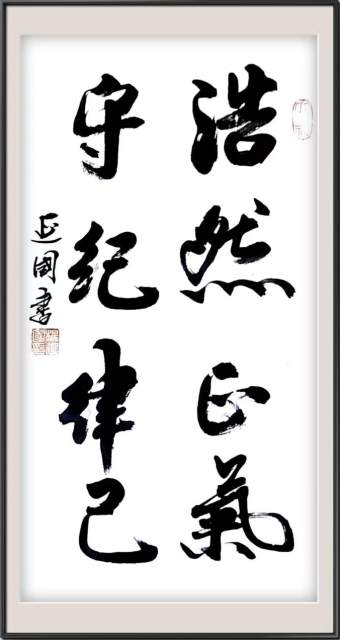 浩然正氣
守紀律己
延國書